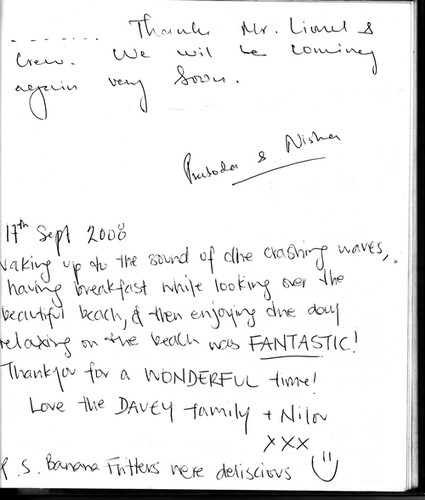 ........ Thanks Mr. Lionel &
Crew. We will be coming
again very soon.
& Nisha
17th Sept 2008
waking up to the sound of the crashing waves,
having breakfast while looking over the
beautiful beach, & then enjoying the day
relaxing on the beach was FANTASTIC!
Thankyou for a WONDERFUL time!
Love the DAVEY family + Nilou
xxx
P.S. Banana Fritters were deliscious